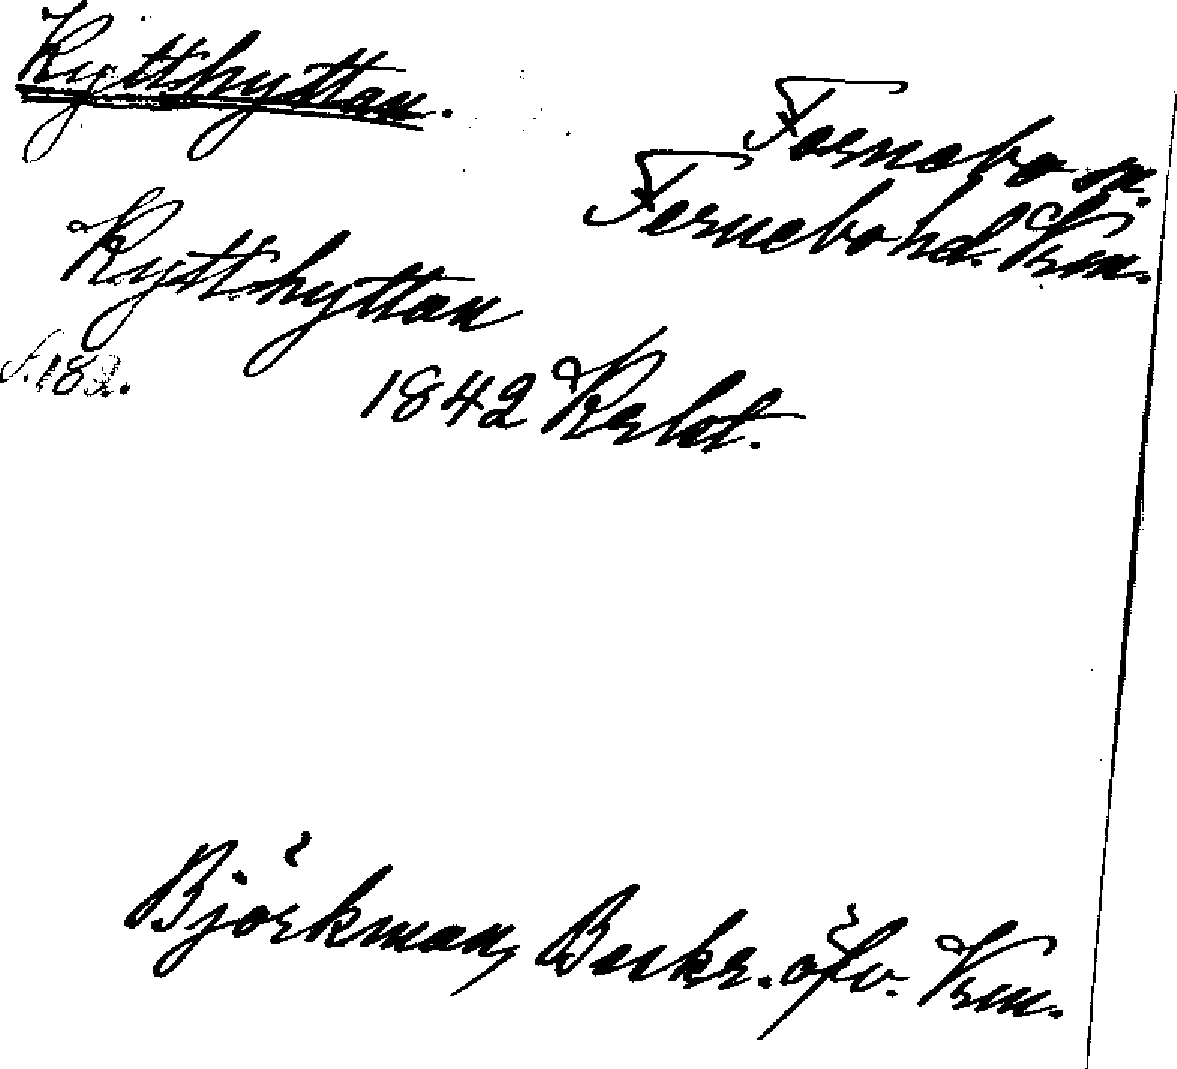 Kyttshyttan.
Fernebo sn.
Fernebo hd. Vrm.
Kyttshyttan
s. 182.
1842
Björkman, Beskr. öfv. Vrm.